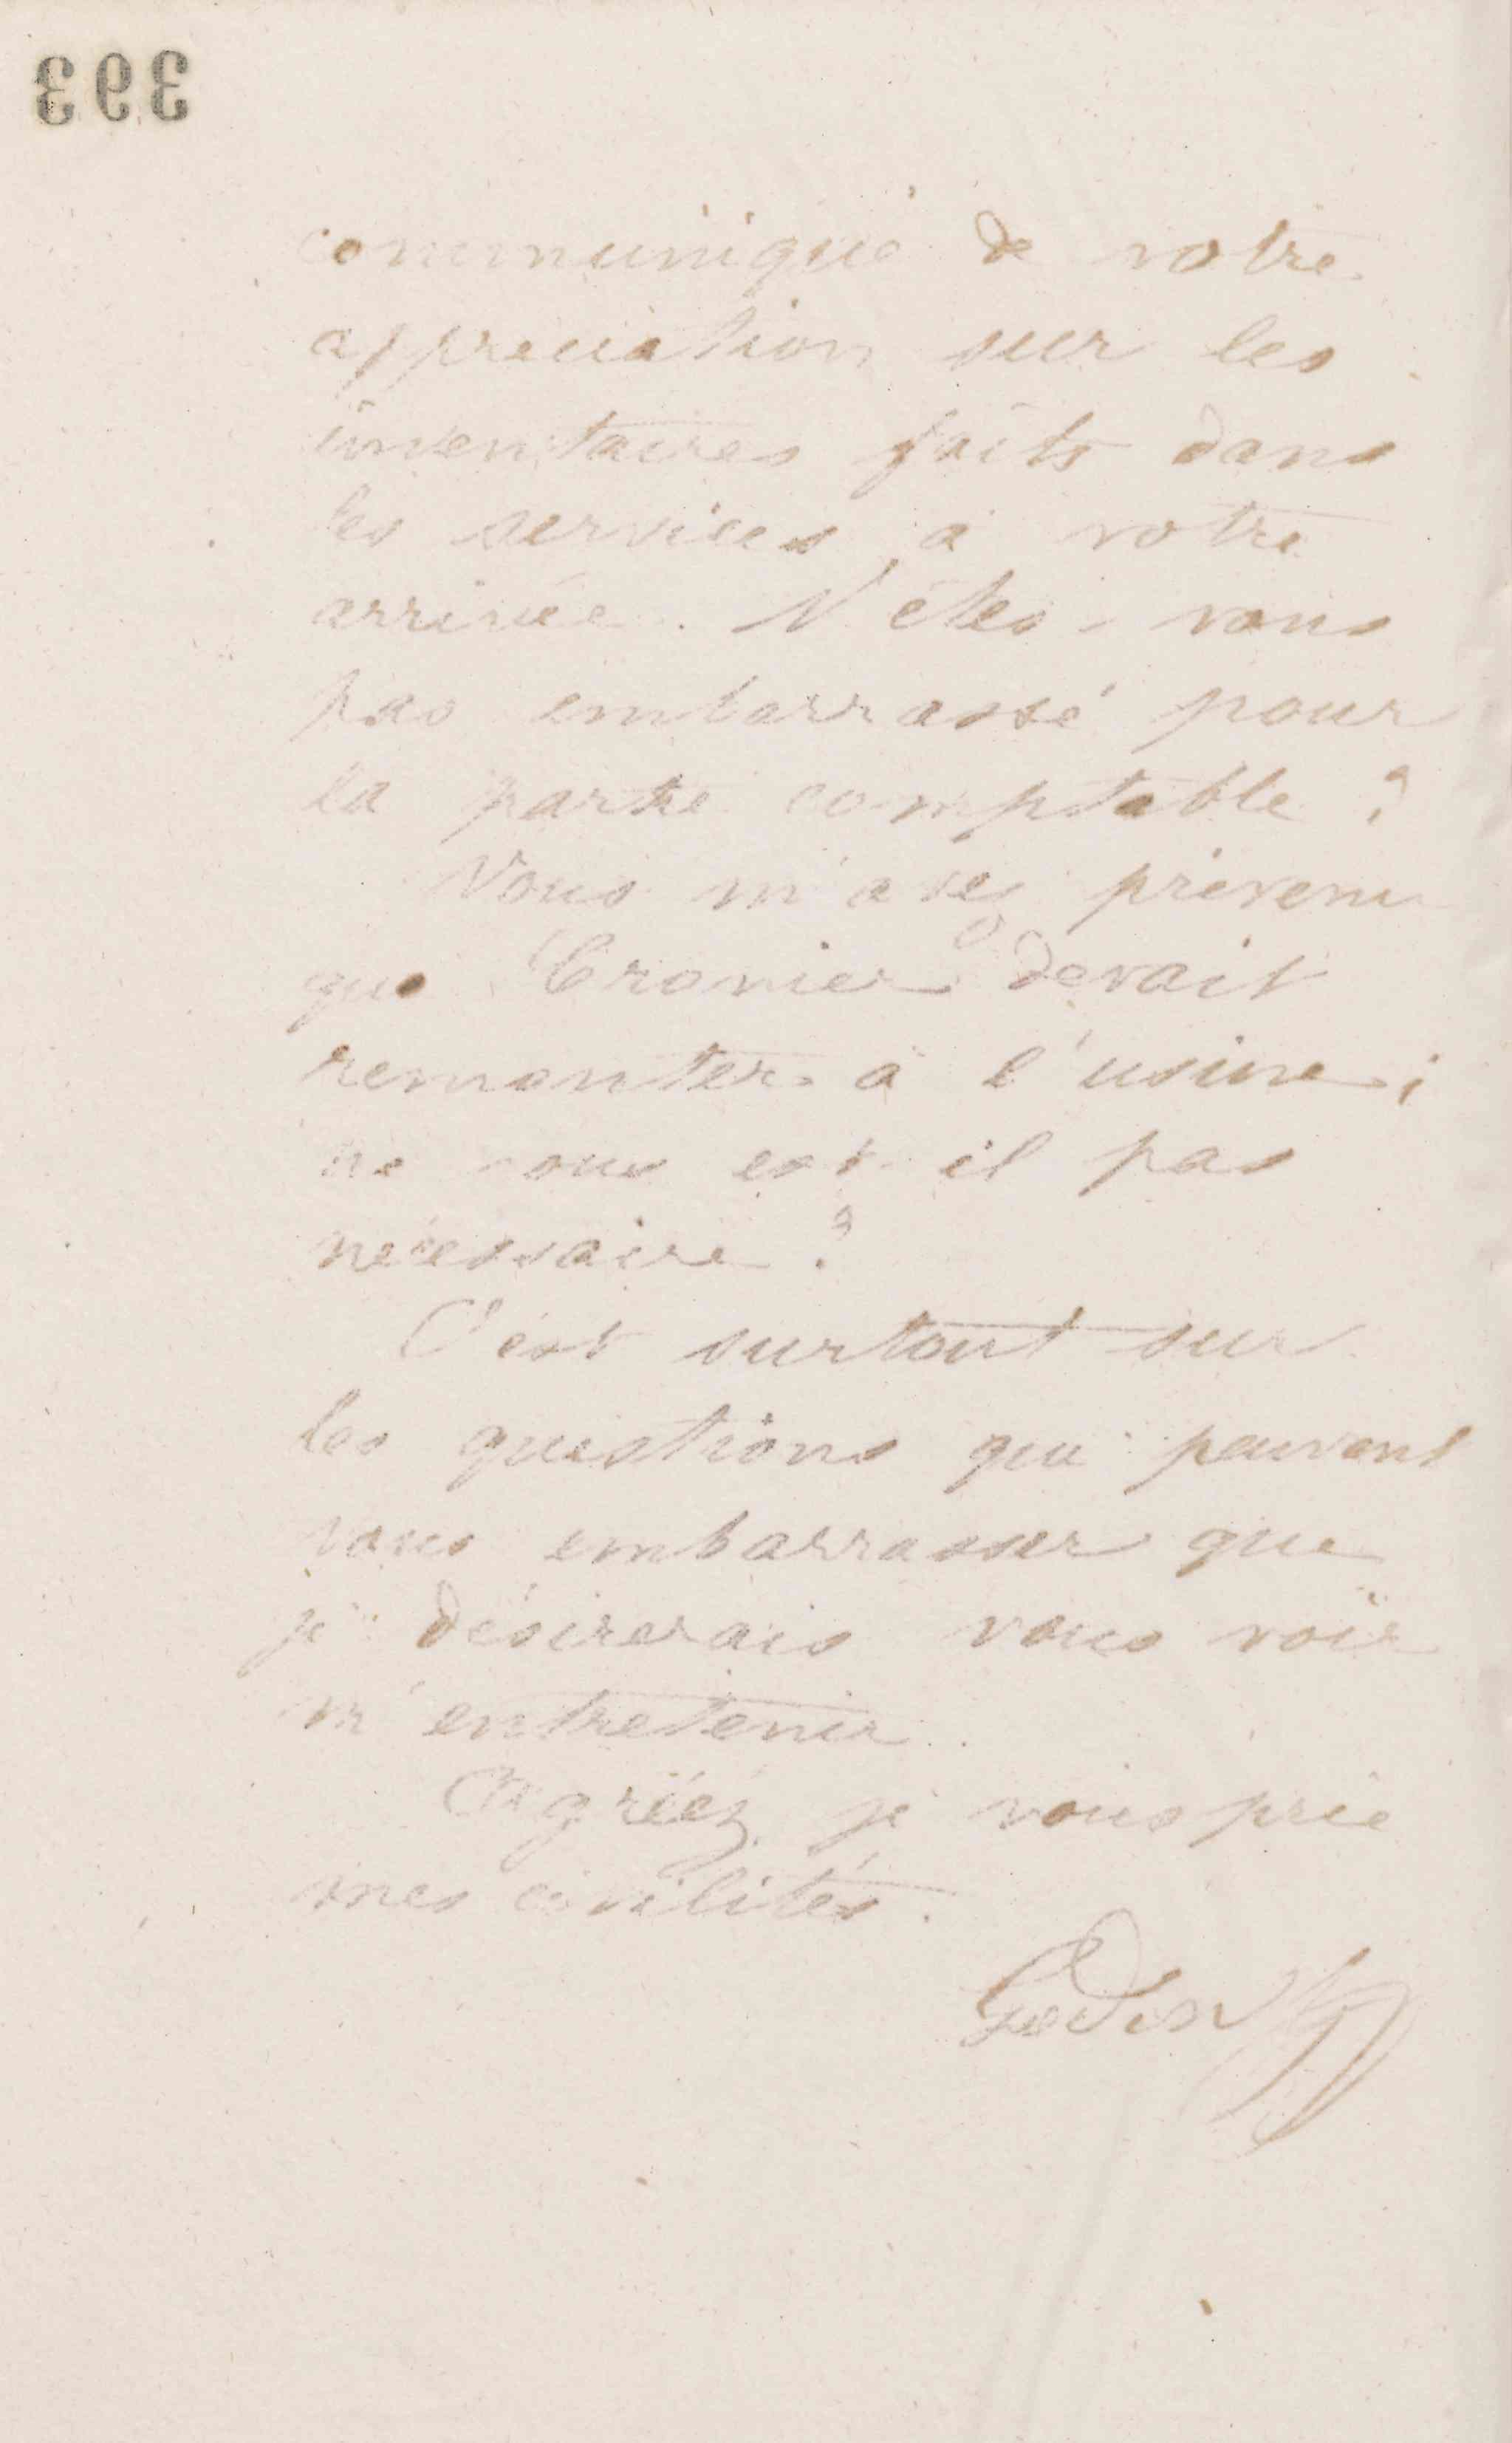 393
communiqué de votre
appreciation sur les
inventaires faits dans
les services à votre
arrivée. N'êtes-vous
pas embarrassé pour
la partie comptable ?
Vous m'avez prévenu
que Cronier devait
remonter à l'usine ;
ne vous est-il pas
nécessaire ?
C'est surtout sur
les questions qui peuvent
vous embarrasser que
je désirerais vous voir
m'entretenir.
Agréez je vous prie
mes civilités.
Godin